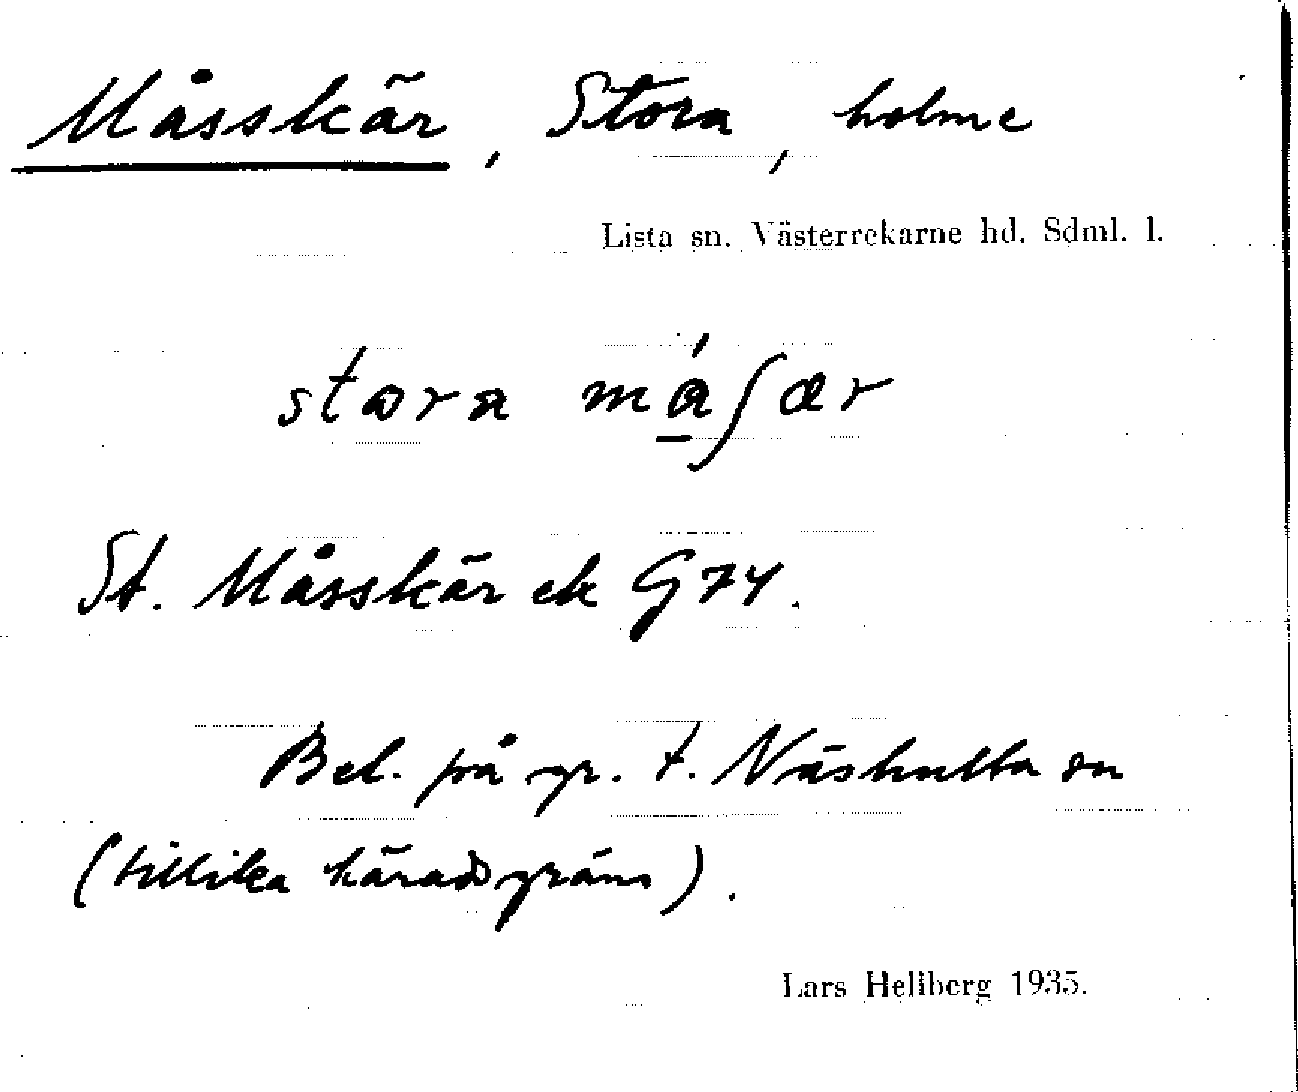 Måsskär, Stora, holme
Lista sn. Västerrekarne hd. Sdml. l.
stora måʃær
St. Måsskär ek G74.
Bel. på gr. t. Näshulta sn
(tillika häradsgräns).
Lars Hellberg 1935.